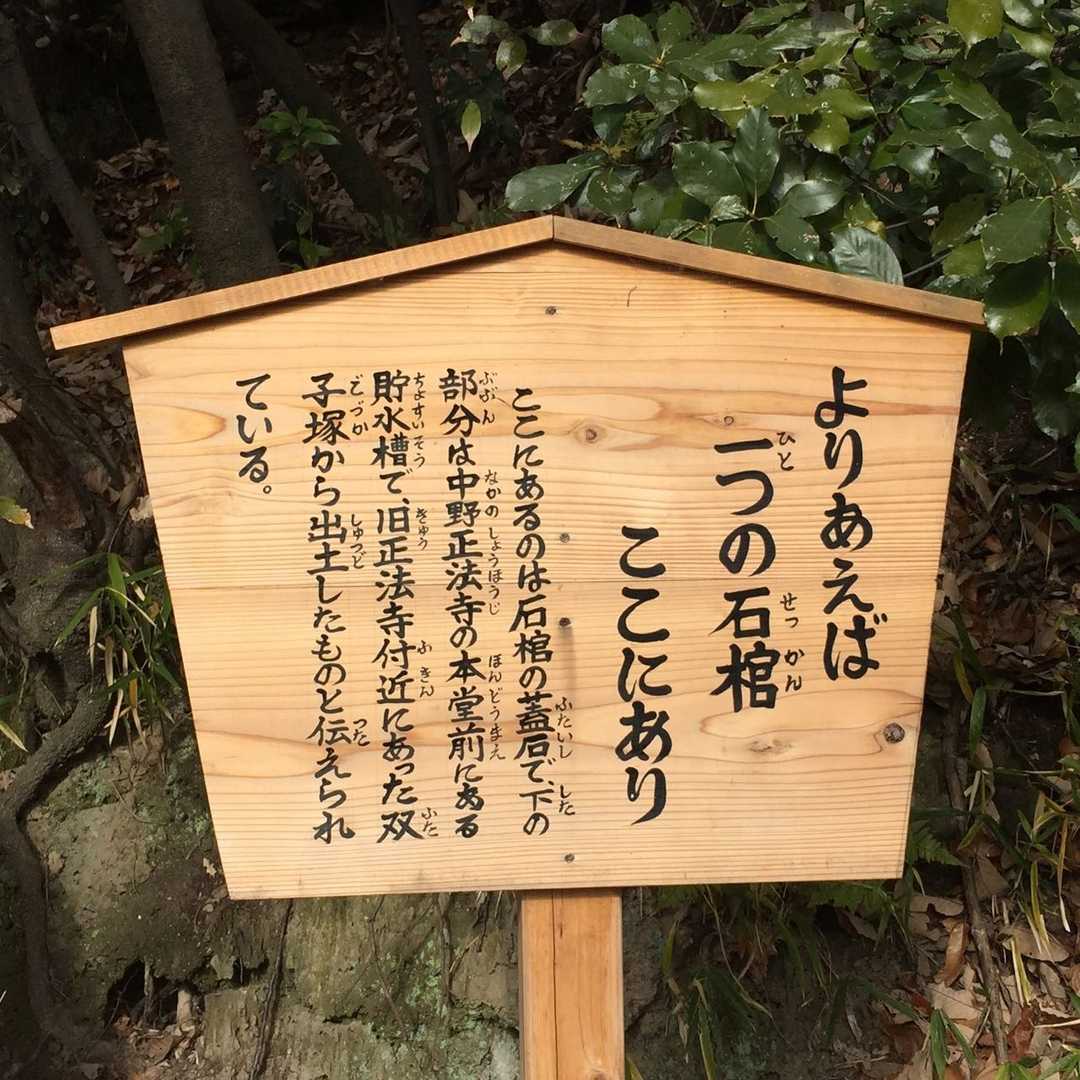 よりあえば
一つの石棺
ここにあり
ここにあるのは石棺の蓋石で、下の
部分は中野正法寺の本堂前にある
貯水槽で、旧正法寺付近にあった双
子塚から出土したものと伝えられ
ている。